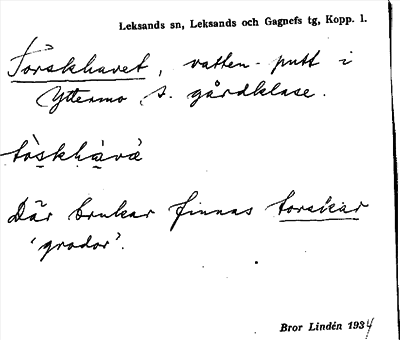 Leksands sn, Leksands och Gagnefs tg, Kopp. l.
Torskhavet, vatten-putt i
Yttermo, s. gårdklase.
tòskhàvä
Där brukar finnas torskar
'grodor'.
Bror Lindén 1934